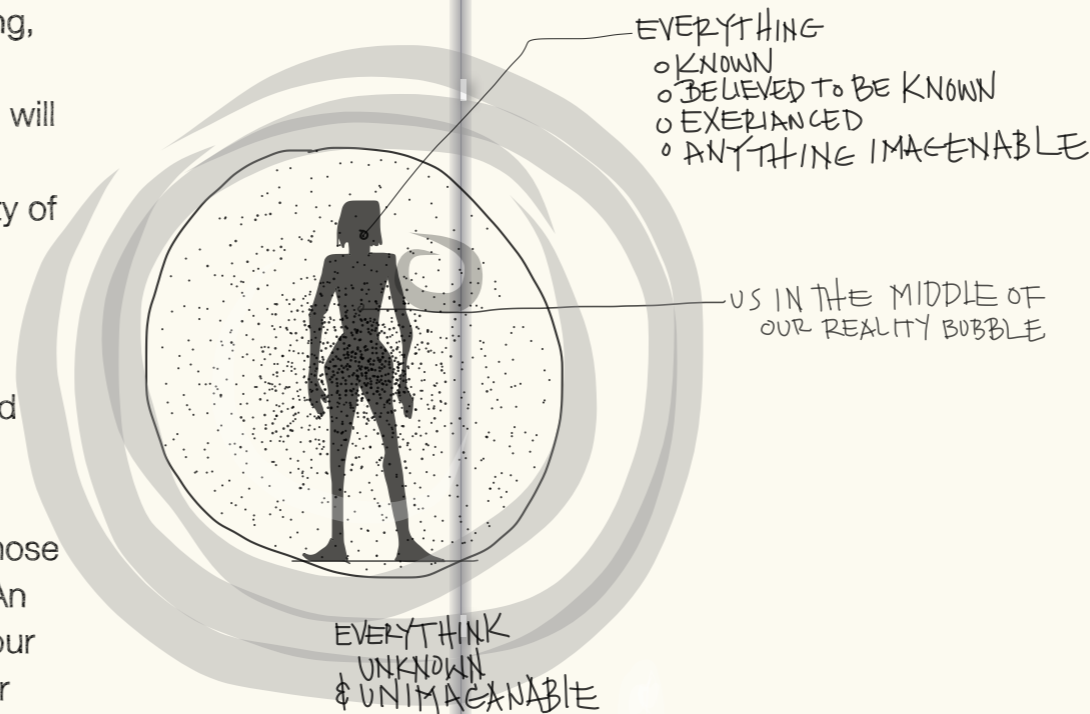 ng,
will
ty of
d
nose
An
our
r
EVERYTHING
○ KNOWN
○ BELIEVED TO BE KNOWN
○ EXERIANCED
○ ANYTHING IMAGENABLE
US IN THE MIDDLE OF
OUR REALITY BUBBLE
EVERYTHINK
UNKNOWN
& UNIMAGANABLE